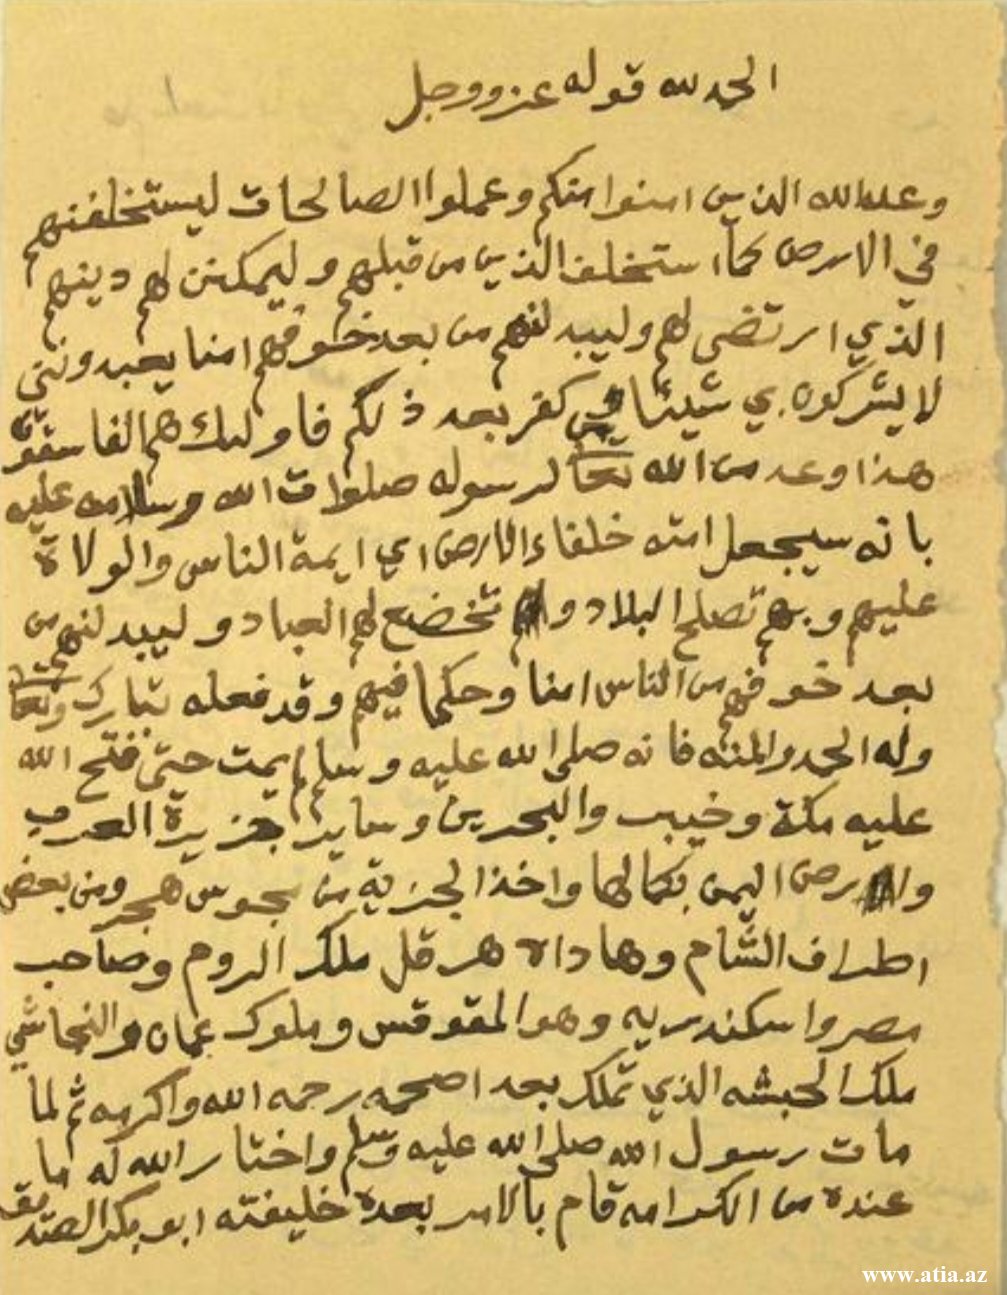 الحمد لله قوله عز ووجل
وعد الله الذين امنوا منكم وعملوا الصالحات ليستخلفنهم
في الارض كما استخلف الذين من قبلهم وليمكنن لهم دينهم
الذي ارتضى لهم وليبدلنهم من بعد خوفهم امنا يعبدونني
لا يشركون بي شيئا ومن كفر بعد ذلكم فاوليك هم الفاسقون
هذا وعد من الله تعا لرسوله صلوات الله وسلامه عليه
بانه سيجعل امته خلفاء الارض اي ايمة الناس والولاة
عليهم وبهم تصلح البلاد و تخضع لهم العباد وليبدلنهم من
بعد خوفهم من الناس امنا وحكما فيهم وقد فعله تبارك وتعا
وله الحمد والمنه فانه صلى الله عليه وسلم لم يمت حتى فتح الله
عليه مكة وخيبر والبحرين وساير جزيرة العرب
وارض اليمن بكمالها واخذ الجزية من مجوس هجر ومن بعض
اطراف الشام وهاداه هرقل ملك الروم وصاحب
مصر واسكندريه وهو المقوقس وملوك عمان والنجاشي
ملك الحبشه الذي تملك بعد اصحمه رحمه الله واكرمه ثم لما
مات رسول الله صلى الله عليه وسلم واختار الله له ما
عنده من الكرامه قام بالامر بعده خليفته ابو بكر الصديق
www.atia.az